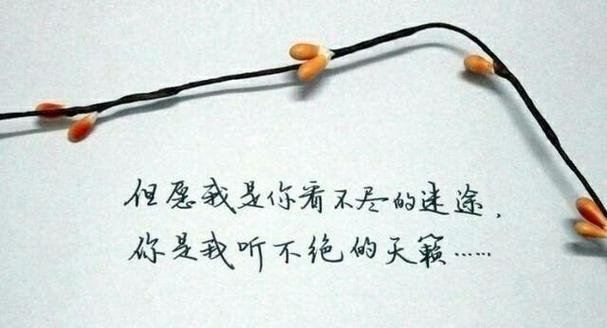 但愿我是你看不尽的迷途，
你是我听不绝的天籁……